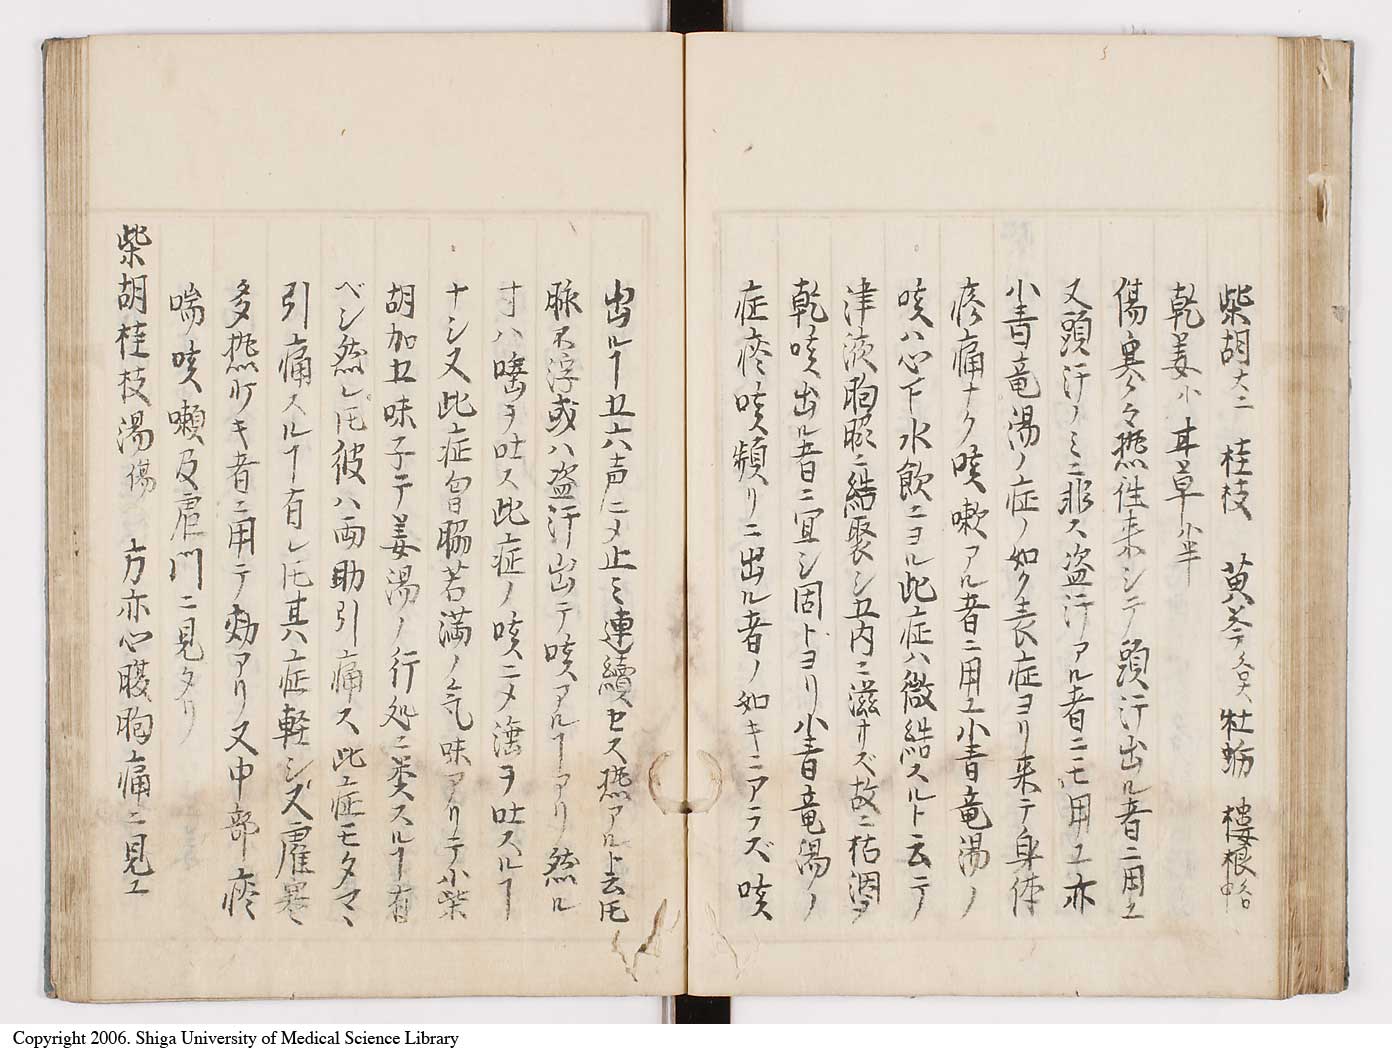 柴胡大二 桂枝 黄芩各大 牡蛎 樓根各中
乾姜小 甘草小半
傷寒 寒熱往来シテ頭汗出ル者ニ用エ
又頭汗ノミニ非ス盗汗アル者ニモ用エ亦
小青竜湯ノ症ノ如ク表症ヨリ来テ身体
疼痛ナク咳嗽アル者ニ用エ小青竜湯ノ
咳ハ心下水飲ニヨル此症ハ微結スルト云テ
津液胸脇ニ結聚シ五内ニ滋サズ故ニ枯涸ノ
乾咳出ル者ニ宜シ固トヨリ小青竜湯ノ
症痰咳頻リニ出ル者ノ如キニアラズ咳
出ルヿ五六声ニメ止ミ連續セス熱アルト云𪜈
脉不浮或ハ盗汗出テ咳アルヿアリ然ル
寸ハ唾ヲ吐ス此症ノ咳ニメ涎ヲ吐スルヿ
ナシ又此症胷脇苦満ノ気味アリテ小柴
胡加五味子テ姜湯ノ行処ニ类スルヿ有
ベシ然レ𪜈彼ハ両肋引痛ス此症モタマヽ
引痛スルヿ有レ𪜈其ハ症軽シズ虚寒ヽ
多熱少キ者ニ用テ効アリ又中部ノ痰
喘咳嗽及虐門ニ見タリ
柴胡桂枝湯傷 方亦心腹胸痛ニ見エ
Copyright 2006. Shiga University of Medical Science Library